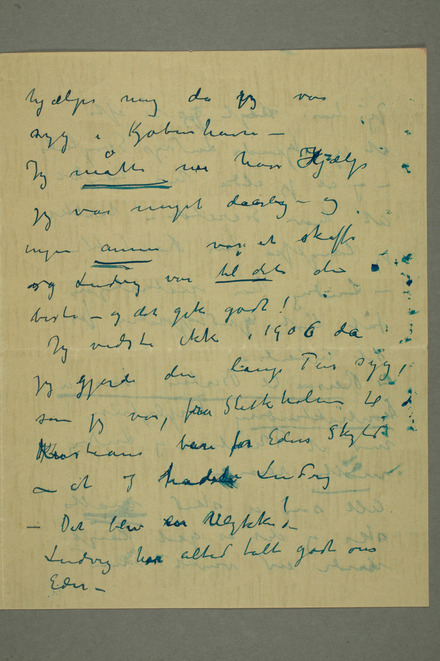 hjælpe meg da jeg var
syg i Kjøbenhavn –
Jeg måtte jo have Hjælp
jeg var meget daarlig – og
ingen annen var at skaffe
og Ludvig var til det den
beste – og det gik godt!
Jeg vidste ikke i 1906 da
jeg gjorde den lange Tur syg,
som jeg var, fra Stokholm til
Kristiania bare for Eders Skyld
– at I hadde Ludvig
– Det blev en Ulykke! –
Ludvig har altid talt godt om
Eder –